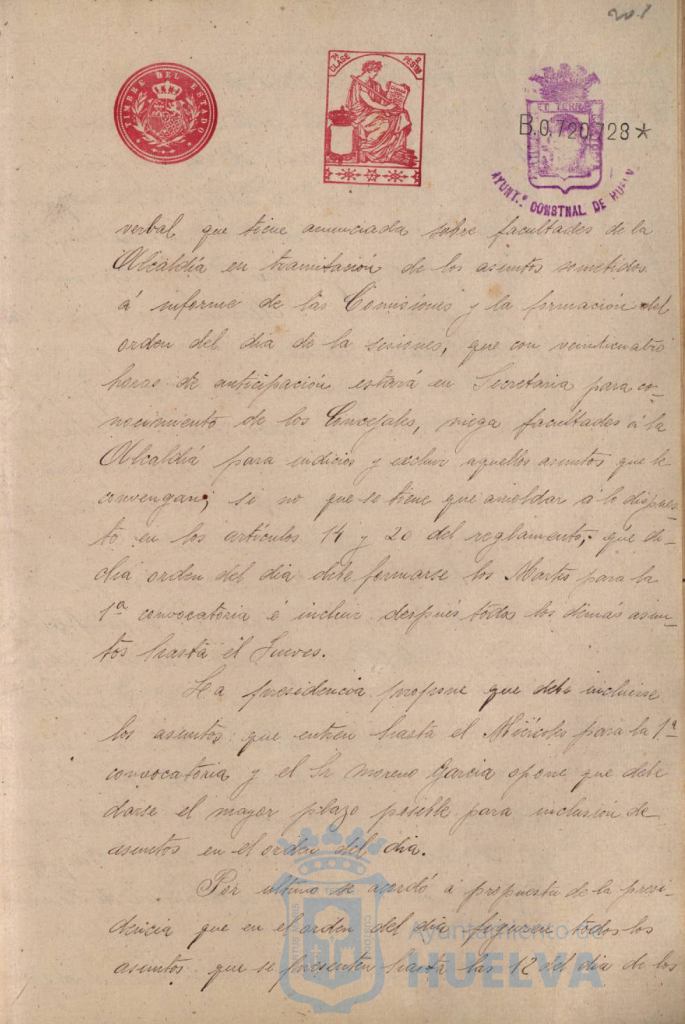 201
TIMBRE DEL ESTADO
7ª CLASE 2 PESETAS
B.0,720,728*
AYUNT.º CONSTNAL DE HUELVA
verbal que tiene anunciada sobre facultades de la
Alcaldía en tramitación de los asuntos sometidos
á informe de las Comisiones y la formación del
orden del dia de la sesiones, que con veinticuatro
horas de anticipación estará en Secretaria para co-
nocimiento de los Concejales, niega facultades á la
Alcaldía para y excluir aquellos asuntos que le
convengan; si no que se tiene que amoldar á lo dispues-
to en los artículos 14 y 20 del reglamento; que di-
cha orden del dia debe formarse los Martes para la
1ª convocatoria é incluir después todos los demás asun-
tos hasta el Jueves.
La presidencia propone que debe incluirse
los asuntos que entren hasta el Miércoles para la 1ª
convocatoria y el Sr Moreno Garcia opone que debe
darse el mayor plazo posible para inclusión de
asuntos en el orden del dia.
Por último se acordó á propuesta de la presi-
dencia que en el orden del dia figuren todos los
asuntos que se presenten hasta las 12 del dia de los
Ayuntamiento de
HUELVA